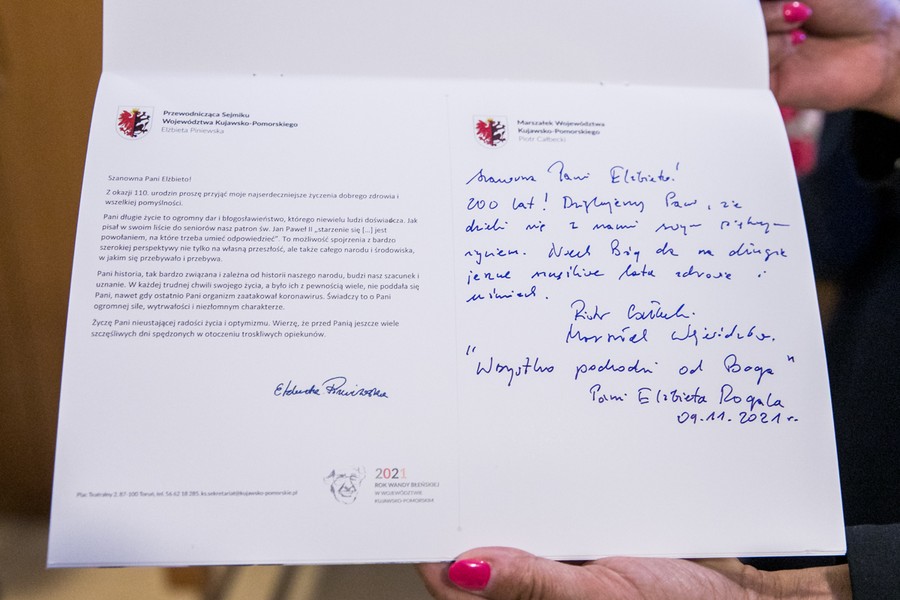 Przewodnicząca Sejmiku
Województwa Kujawsko-Pomorskiego
Elżbieta Piniewska
Szanowna Pani Elżbieto!
Z okazji 110. urodzin proszę przyjąć moje najserdeczniejsze życzenia dobrego zdrowia i
wszelkiej pomyślności.
Pani długie życie to ogromny dar i błogosławieństwo, którego niewielu ludzi doświadcza. Jak
pisał w swoim liście do seniorów nasz patron św. Jan Paweł II „starzenie się [...] jest
powołaniem, na które trzeba umieć odpowiedzieć”. To możliwość spojrzenia z bardzo
szerokiej perspektywy nie tylko na własną przeszłość, ale także całego narodu i środowiska,
w jakim się przebywało i przebywa.
Pani historia, tak bardzo związana i zależna od historii naszego narodu, budzi nasz szacunek i
uznanie. W każdej trudnej chwili swojego życia, a było ich z pewnością wiele, nie poddała się
Pani, nawet gdy ostatnio Pani organizm zaatakował koronawirus. Świadczy to o Pani
ogromnej sile, wytrwałości i niezłomnym charakterze.
Życzę Pani nieustającej radości życia i optymizmu. Wierzę, że przed Panią jeszcze wiele
szczęśliwych dni spędzonych w otoczeniu troskliwych opiekunów.
Elżbieta Piniewska
Plac Teatralny 2, 87-100 Toruń, tel. 56 62 18 285, ks.sekretariat@kujawsko-pomorskie.pl
2021
ROK WANDY BŁEŃSKIEJ
W WOJEWÓDZTWIE
KUJAWSKO-POMORSKIM
Marszałek Województwa
Kujawsko-Pomorskiego
Piotr Całbecki
Szanowna Pani Elżbieto!
200 lat! Dziękujemy Pani, że
dzieli się z nami swym pięknym
życiem. Niech Bóg da na długie
jeszcze możliwe lata zdrowie i
uśmiech.
Piotr Całbecki.
Marszałek Województwa.
"Wszystko pochodzi od Boga"
Pani Elżbieta Rogala
09.11.2021 r.